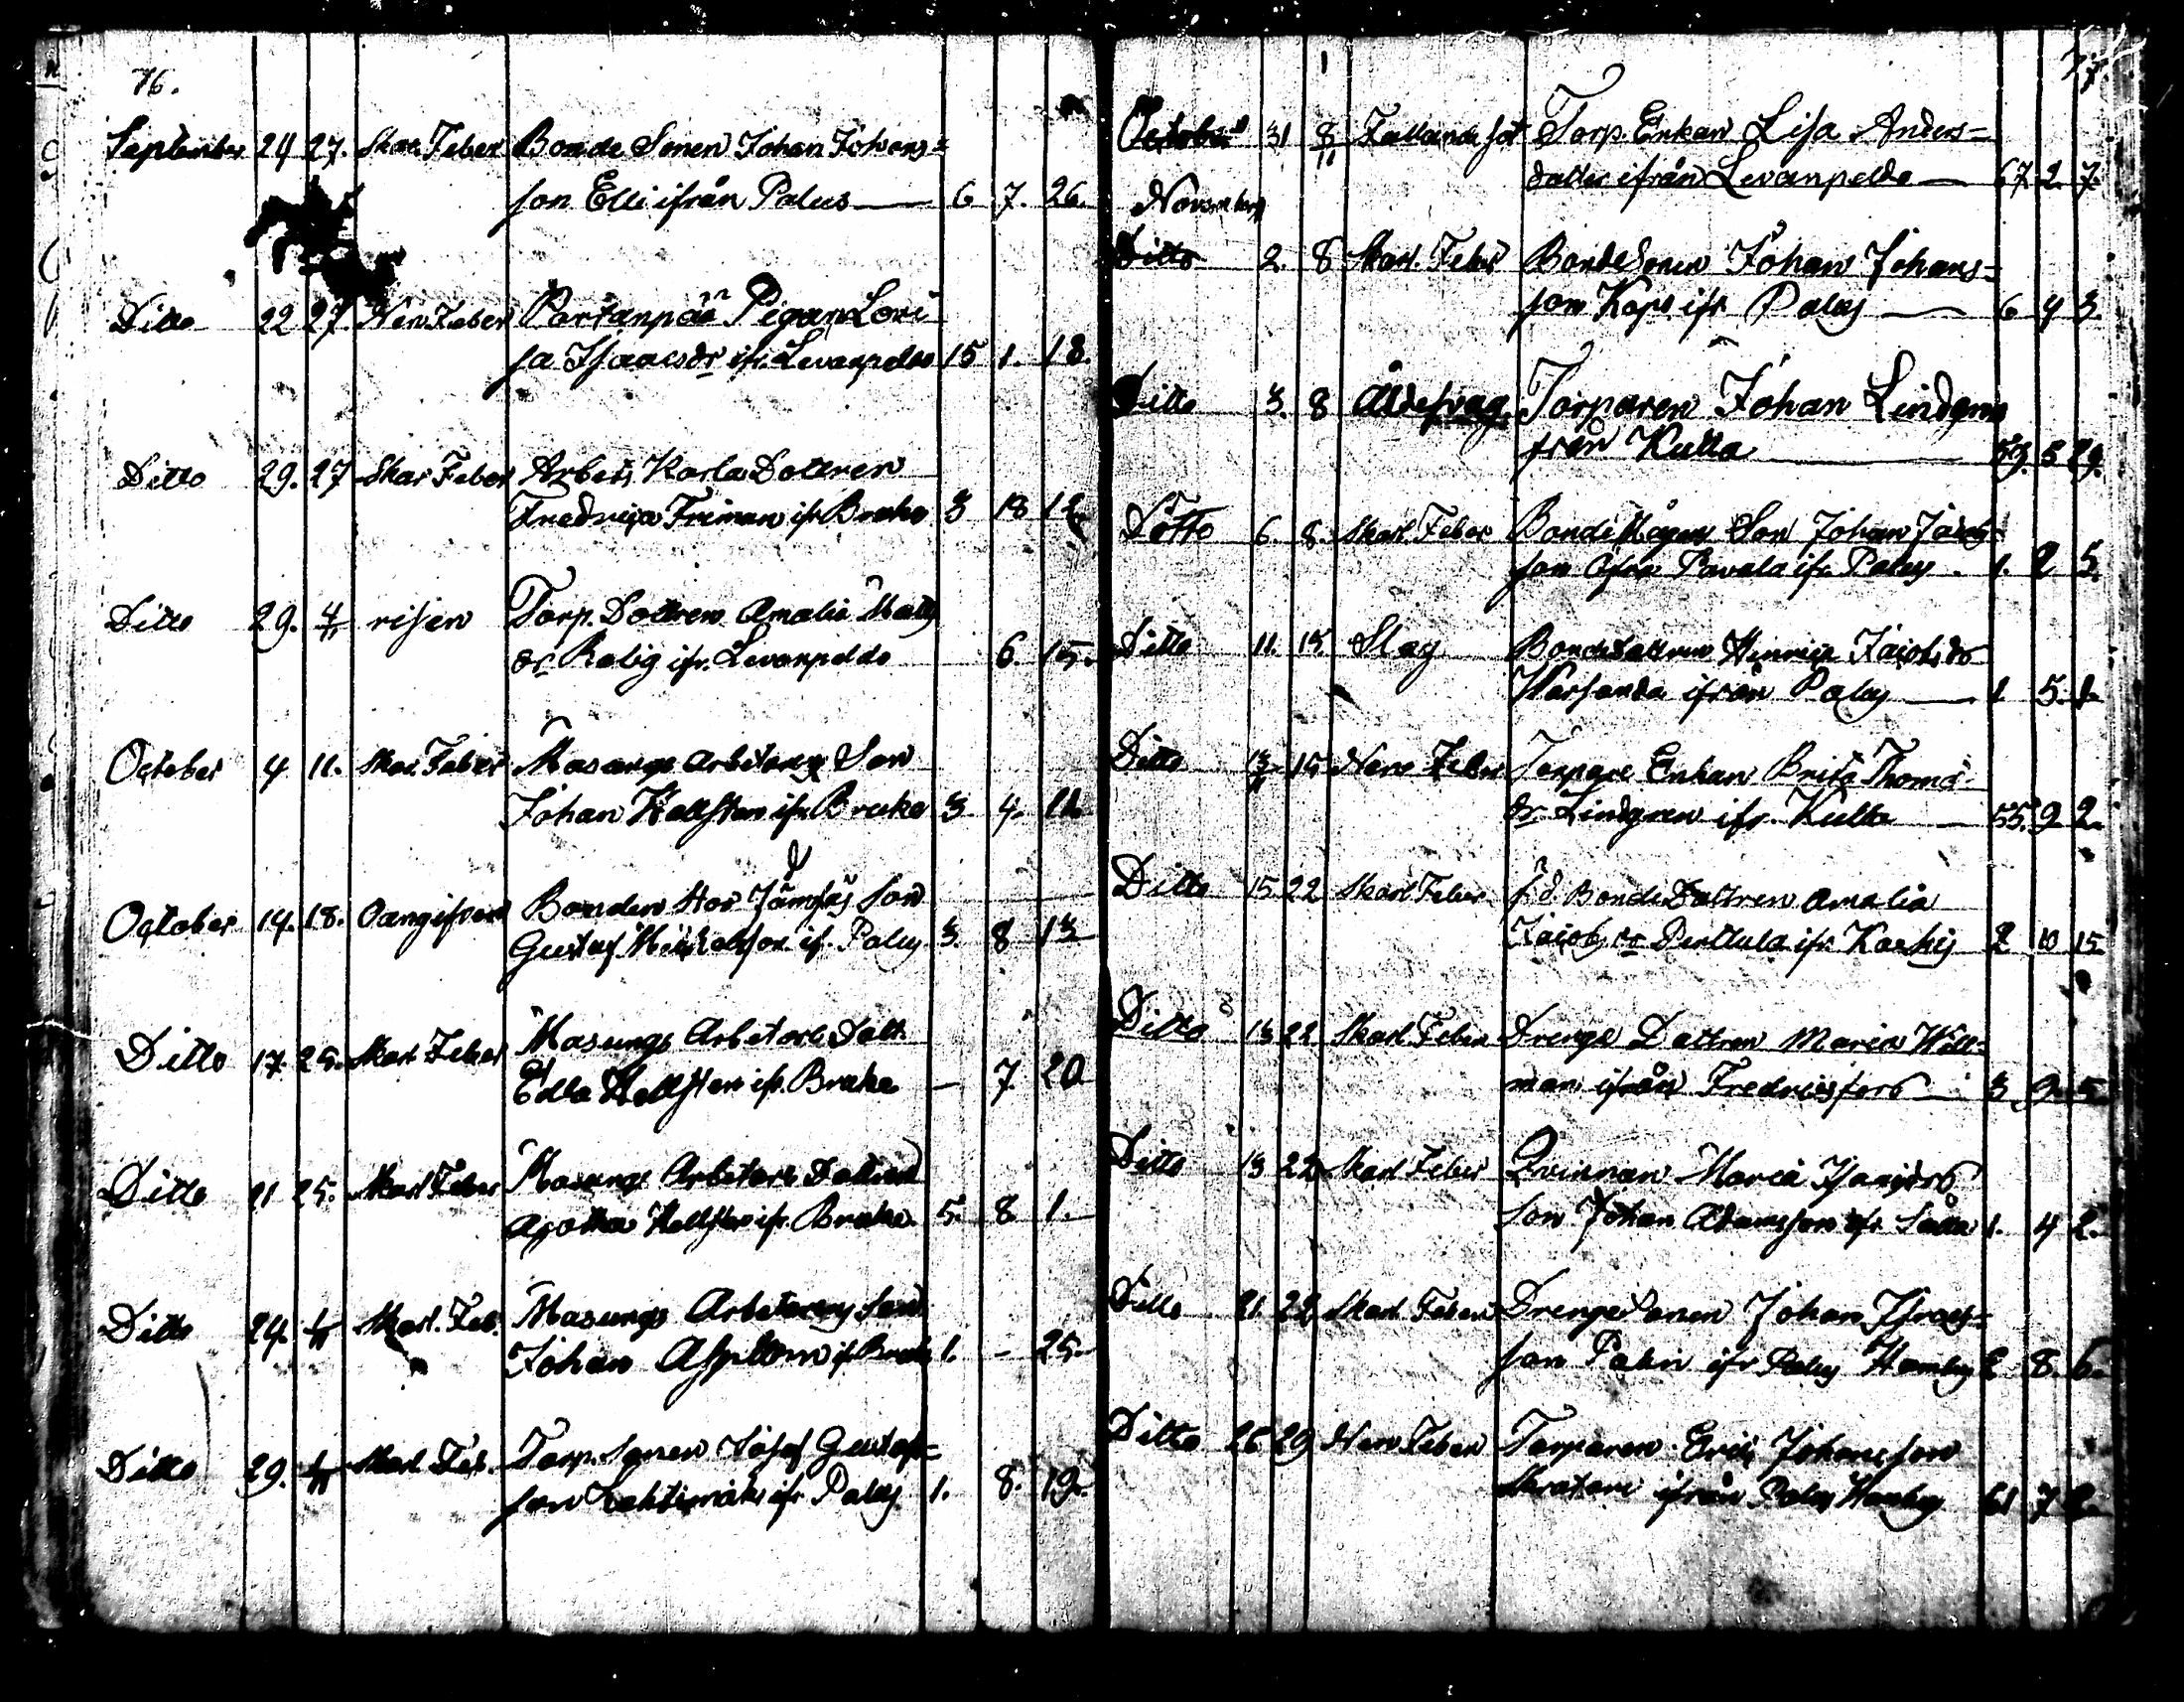 76.
September 24 27. Skar. Feber Bonde Sonen Johan Johans=
son Elli ifrån Palus — 6 7. 26.
Ditto 22 27. Nerv. Feber Partanpää Pigan Lovi
sa Isaacsdr ifr. Levanpelde 15 1. 18.
Ditto 29. 27 Skar Feber Arbets Karls Dottren
Fredrica Friman ifr Bruke 3 18
Ditto 29. 4/11 risen Torp. Dottren Amalia Matts
dr Rabig ifr. Levanpeldo 6. 15.
October 4 11. Skar. Feber Masungs Arbetares Son
Johan Hellsten ifr. Bruke 3 4. 11.
October 14. 18. Oangifven Bonden Stor Jämsäs Son
Gustaf Michelsson if. Palus 3. 8 13
Ditto 17. 25. Skarl Feber Masungs Arbetare Dott.
Edla Hellsten ifr. Bruke — 7. 20
Ditto 21 25. Skarl Feber Masungs Arbetare Dottren
Agatta Hellsten ifr. Bruke 5. 8 1.
Ditto 24. 1/11 Skarl. Feb. Masungs Arbetares Son
Johan Aspblom if Bruk 1. - 25.
Ditto 29. 1/11 Skarl Feb. Torp. Sonen Josef Gustafs=
son Lahtimäki ifr Palus 1. 8. 19.
77.
October 31 8/11 Fallande sot Torp. Enkan Lisa Anders=
datter ifrån Levanpelde — 67 2. 7.
November
Ditto 2. 8 Skarl. Feber Bonde Sonen Johan Johans=
son Kops ifr Palus — 6 4 3.
Ditto 3. 8 Ålders svag. Torparen Johan Lindgren
från Kulla — 59. 5 29.
Ditto 6. 8. Skarl Feber Bonde Mågens Son Johan Jacobs=
son Öfver Pavola ifr. Palus. 1. 2 5.
Ditto 11. 15. Slag Bonde Dottren Henrica Jacobsdr
Warsanda ifrån Palus — 1 5. 1.
Ditto 15 Nerv Feber Torpare Enkan Brita Thomæ
dr. Lindgren ifr. Kulla — 55. 9 2.
Ditto 15. 22 Skarl Feber f.d. Bonde Dottren Amalia
Jacobsdr Perttula ifr. Kaskis 2 10 15
Ditto 13 22 Skarl Feber Drengs Dottren Maria Wall=
man ifrån Fredricsfors 3 9. 5.
Ditto 13 22 Skarl Feber Qvinnan Maria Isaacsdrs
Son Johan Adamsson ifr. Sålla 1. 4 2.
Ditto 21. 22 Skarl Feber Drenge Sonen Johan Israels=
son Palin ifr Palus Hamby 2 8. 6.
Ditto 26 29 Nerv Feber Torparen Eric Johansson
ifrån Palus Hamby 61 7